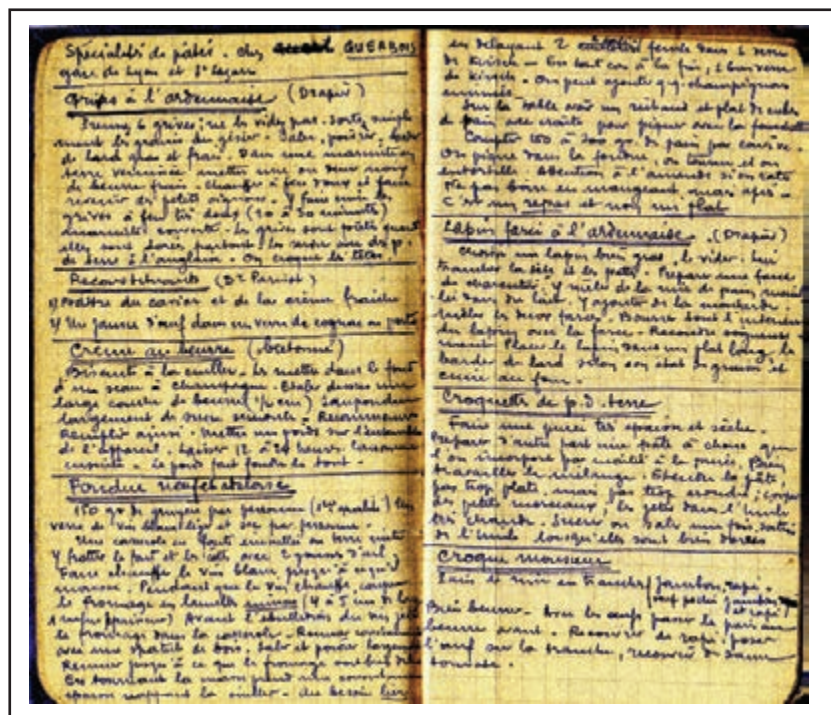 Spécialités de pâtés. Chez GUERBOIS
gare de Lyon et St Lazare
Grives à l'ardennaise (Drapier)
Prenez 6 grives; ne les videz pas. Sortez simple
ment les grains du gésier. Saler, poivrer, barder
de lard gras et frais. Dans une marmite en
terre vernissée mettre une ou deux noix
de beurre frais. chauffer à feu doux et faire
revenir des petits oignons. Y faire cuire les
grives à feu très doux (20 à 30 minutes)
marmite couverte. Les grives sont prêtes quand
elles sont dorées partout. Les servir avec des p.
de terre à l'anglaise. On croque les têtes.
Reconstituants (Dr
1) Mettre du caviar et de la crème fraîche
2) Un jaune d'œuf dans un verre de cognac ou porto
Crème au beurre (bretonne)
Biscuit à la cuiller. Les mettre dans le fond
d'un seau à champagne. Etaler dessus une
large couche de beurre (½ cm) saupoudrer
largement de sucre semoule. Recommencer
Remplir ainsi. Mettre un poids sur l'ensemble
de l'appareil. Laisser 12 à 24 heures.
ensuite. Le poids fait fondre le tout.
Fondue neufchateloise
150 gr de gruyère par personne (1ère qualité) Un
verre de vin blanc léger et sec par personne.
Une casserole en fonte émaillée ou terre cuite
Y frotter le fond et les côtés avec 2 gousses d'ail.
Faire chauffer le vin blanc jusqu'à ce qu'il
mousse. Pendant que le vin chauffe, couper
le fromage en lamelles minces (4 à 5 cm de long
Avant l'ébullition du vin jeter
le fromage dans la casserole. Remuer constamment
avec une spatule de bois. Saler et poivrer largement
Remuer jusqu'à ce que le fromage soit bien
En tournant la masse prend une consistance
épaisse nappant la cuiller. Au besoin lier
en délayant 2 fécule dans 1 verre
de kirsch. En tout cas à la fin, 1 bon verre
de kirsch. On peut ajouter q.q. champignons
émincés.
Sur la table avoir un réchaud et plat de cubes
de pain avec croûte pour piquer avec la fourchette
Compter 150 à 200 gr. de pain par convive.
On pique dans la fondue, on tourne et on
entortille. Attention à l'amende si on rate
Ne pas boire en mangeant mais après.
C'est un repas et non un plat
Lapin farci à l'ardennaise. (Drapier)
Choisir un lapin bien gras, le vider. Lui
trancher la tête et les pattes. Préparer une farce
de charcutier. Y mêler de la mie de pain, mouil
lée dans du lait. Y ajouter de la moutarde.
Mêler les deux farces. Bourrer tout l'intérieur
du lapin avec la farce. Recoudre soigneuse
ment. Placer le lapin dans un plat long, le
barder de lard selon son état de graisse et
cuire au four.
Croquette de p. d. terre
Faire une purée très épaisse et sèche.
Préparer d'autre part une pâte à choux que
l'on incorpore par moitié à la purée. Bien
travailler le mélange. Etendre la pâte
pas trop plate, mais pas trop ronde; couper
des petits morceaux, les jeter dans l'huile
très chaude. Sucrer ou saler une fois sorties
de l'huile lorsqu'elles sont bien dorées
Croque monsieur
Pain de mie en tranches (jambon, rapé.
œuf poché jambon
et rapé)
Bien beurrer. Avec les œufs passer le pain au
beurre avant. Recouvrir de rapé, poser
l'œuf sur la tranche, recouvrir de sauce
tomate.